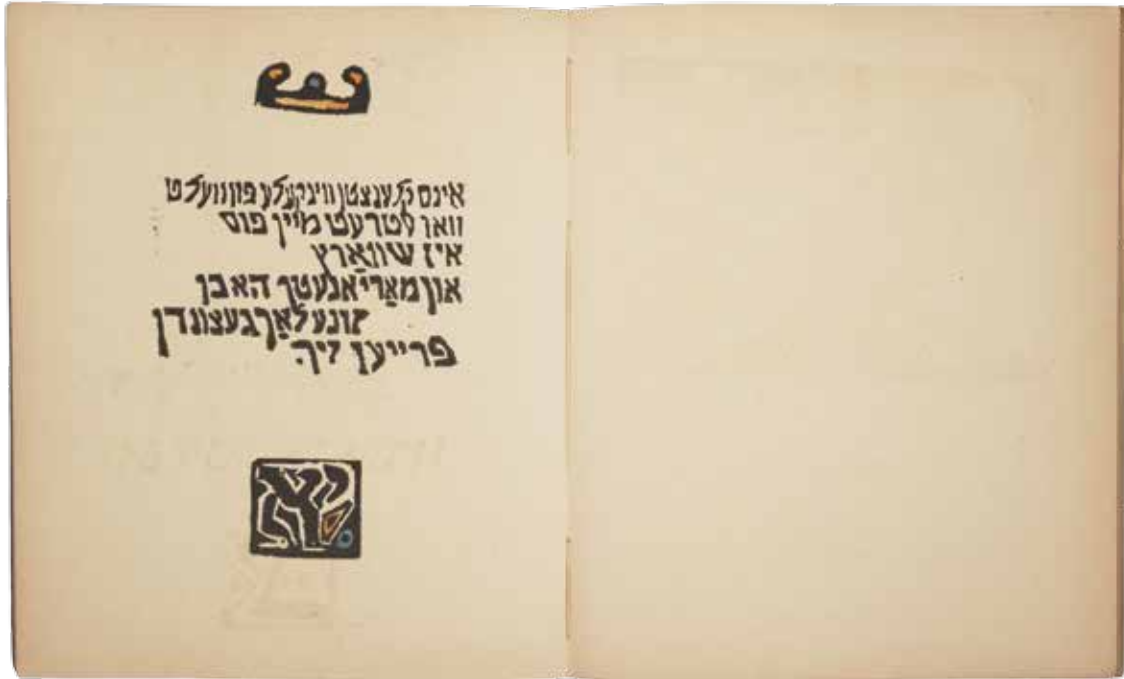 אינס קלענצטן ווינקעלע פון וועלט
וואו סטרעט מיין פוס
איז שוואַרץ
און האבן
זונעלאַך געצונדן
פרייען זיך.